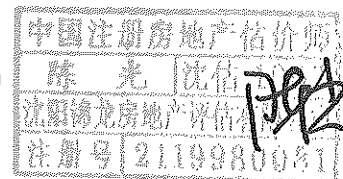 中国注册房地产估价师
陈 光 沈估
沈阳锦龙房地产评估
注册号 2119980041